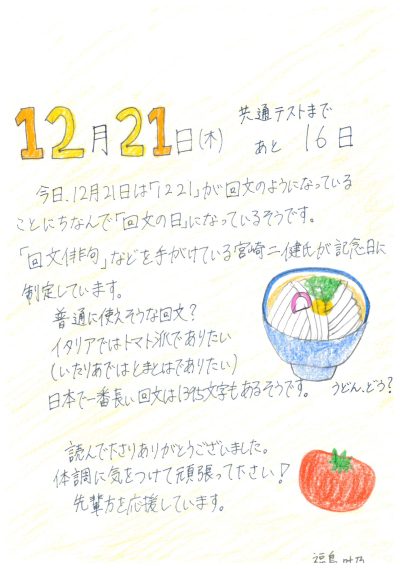 12月21日(木)
共通テストまで
あと 16日
今日、12月21日は「1221」が回文のようになっている
ことにちなんで「回文の日」になっているそうです。
「回文俳句」などを手がけている宮崎二健氏が記念日に
制定しています。
普通に使えそうな回文?
イタリアではトマト派でありたい
(いたりあではとまとはでありたい)
日本で一番長い回文は1395文字もあるそうです。
うどん、どう?
読んで下さりありがとうございました。
体調に気をつけて頑張って下さい!
先輩方を応援しています。